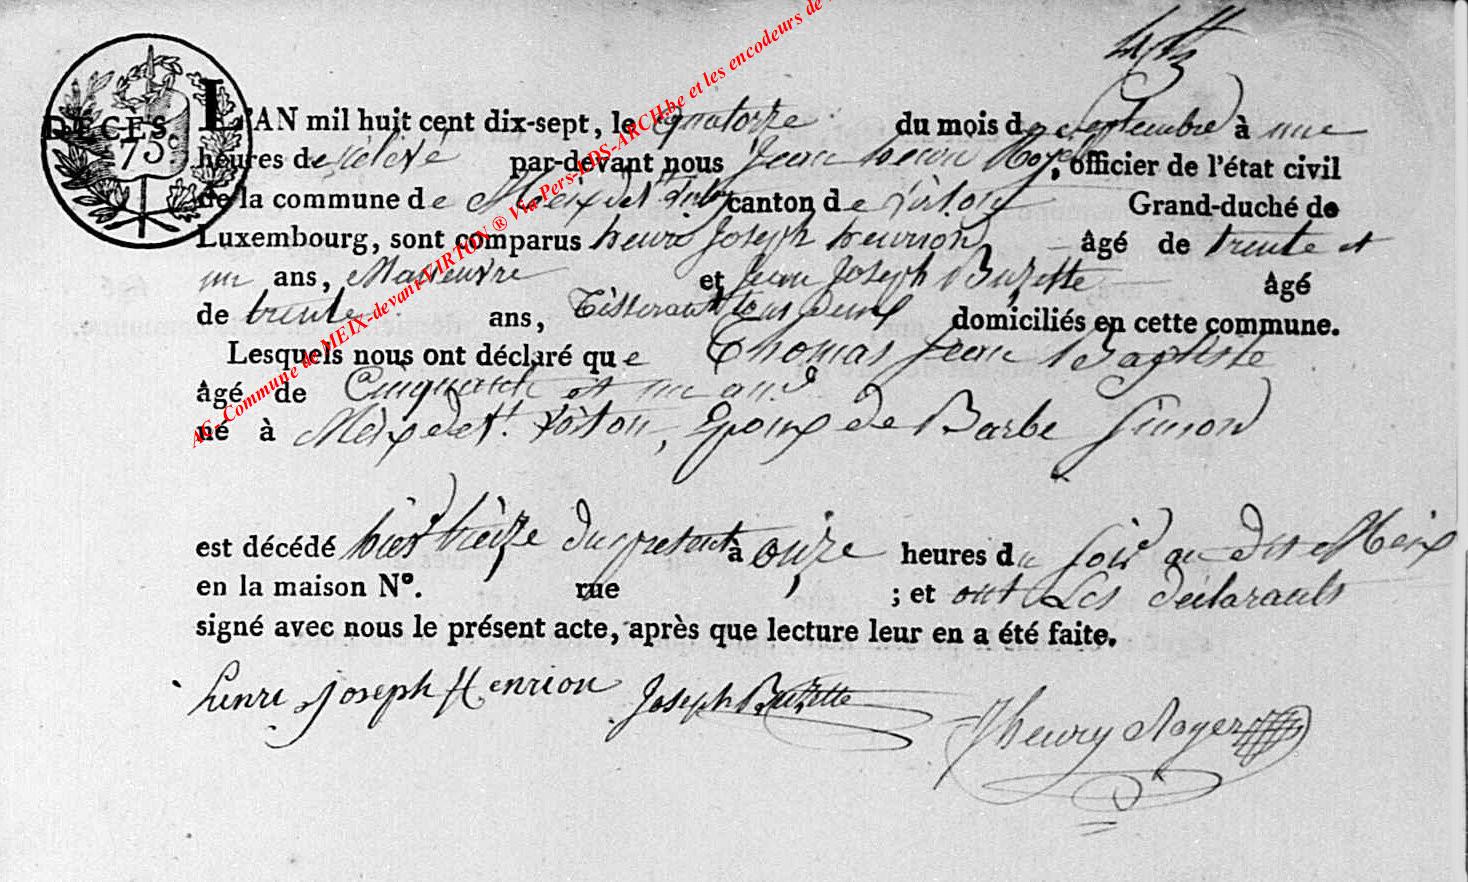 DÉCÈS
75 c
L'AN mil huit cent dix-sept, le quatorze du mois de septembre à une
heures de relevé par-devant nous Jean henry Roger, officier de l'état civil
de la commune de Meix devt Virton canton de Virton Grand-duché de
Luxembourg, sont comparus henri Joseph henrion âgé de trente et
un ans, Manœuvre et Jean Joseph Buzette âgé
de trente ans, Tisserant tous deux domiciliés en cette commune.
Lesquels nous ont déclaré que Thomas Jean Baptiste
âgé de Cinquante et un ans
né à Meix devt. Virton, Epoux de Barbe Simon
est décédé hier treize du present à onze heures du soir au dit Meix
en la maison N°. rue , ; et ont Les déclarants
signé avec nous le présent acte, après que lecture leur en a été faite.
henri Joseph Henrion Joseph Buzette Jhenry Roger
AG. Commune de MEIX-devant-VIRTON ® Via Pers-LDS-ARCH.be et les encodeurs de